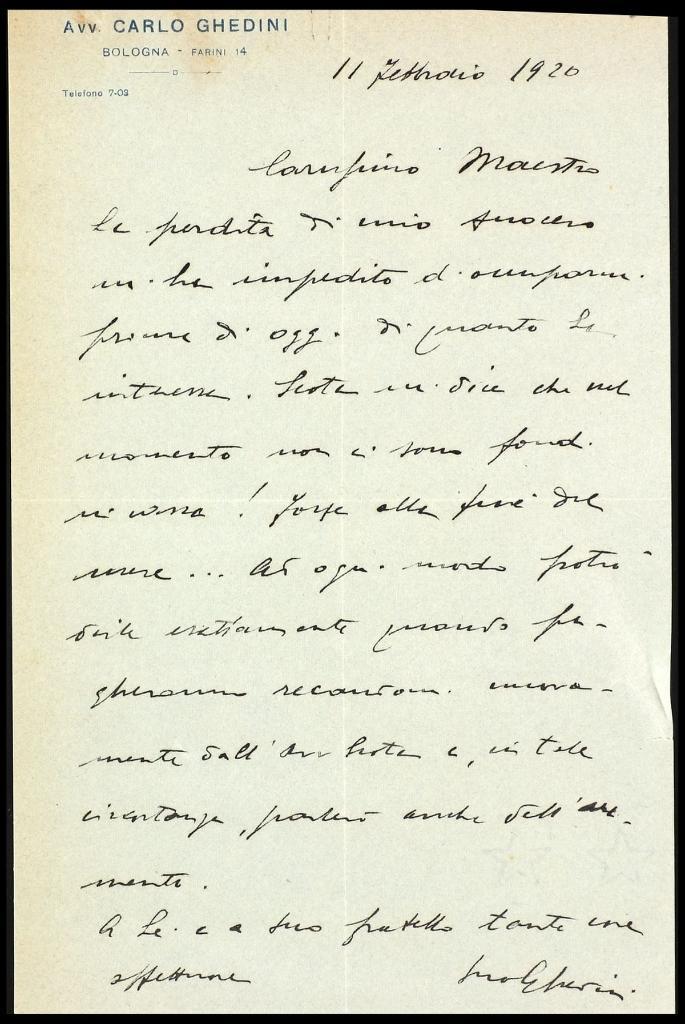 Avv. CARLO GHEDINI
BOLOGNA - FARINI 14
Telefono 7-03
11 Febbraio 1920
Carissimo Maestro
La perdita di mio suocero
mi ha impedito d'occuparmi
prima di oggi di quanto Le
interessa. Scota mi dice che nel
momento non ci sono fondi
in cassa! Forse alla fine del
mese... Ad ogni modo potrò
dirle esattamente quando pa-
gheranno recandomi nuova-
mente dall'Avv Scota e, in tale
circostanza, parlerò anche dell'au-
mento.
A Lei e a suo fratello tante cose
affettuose
Suo Ghedini